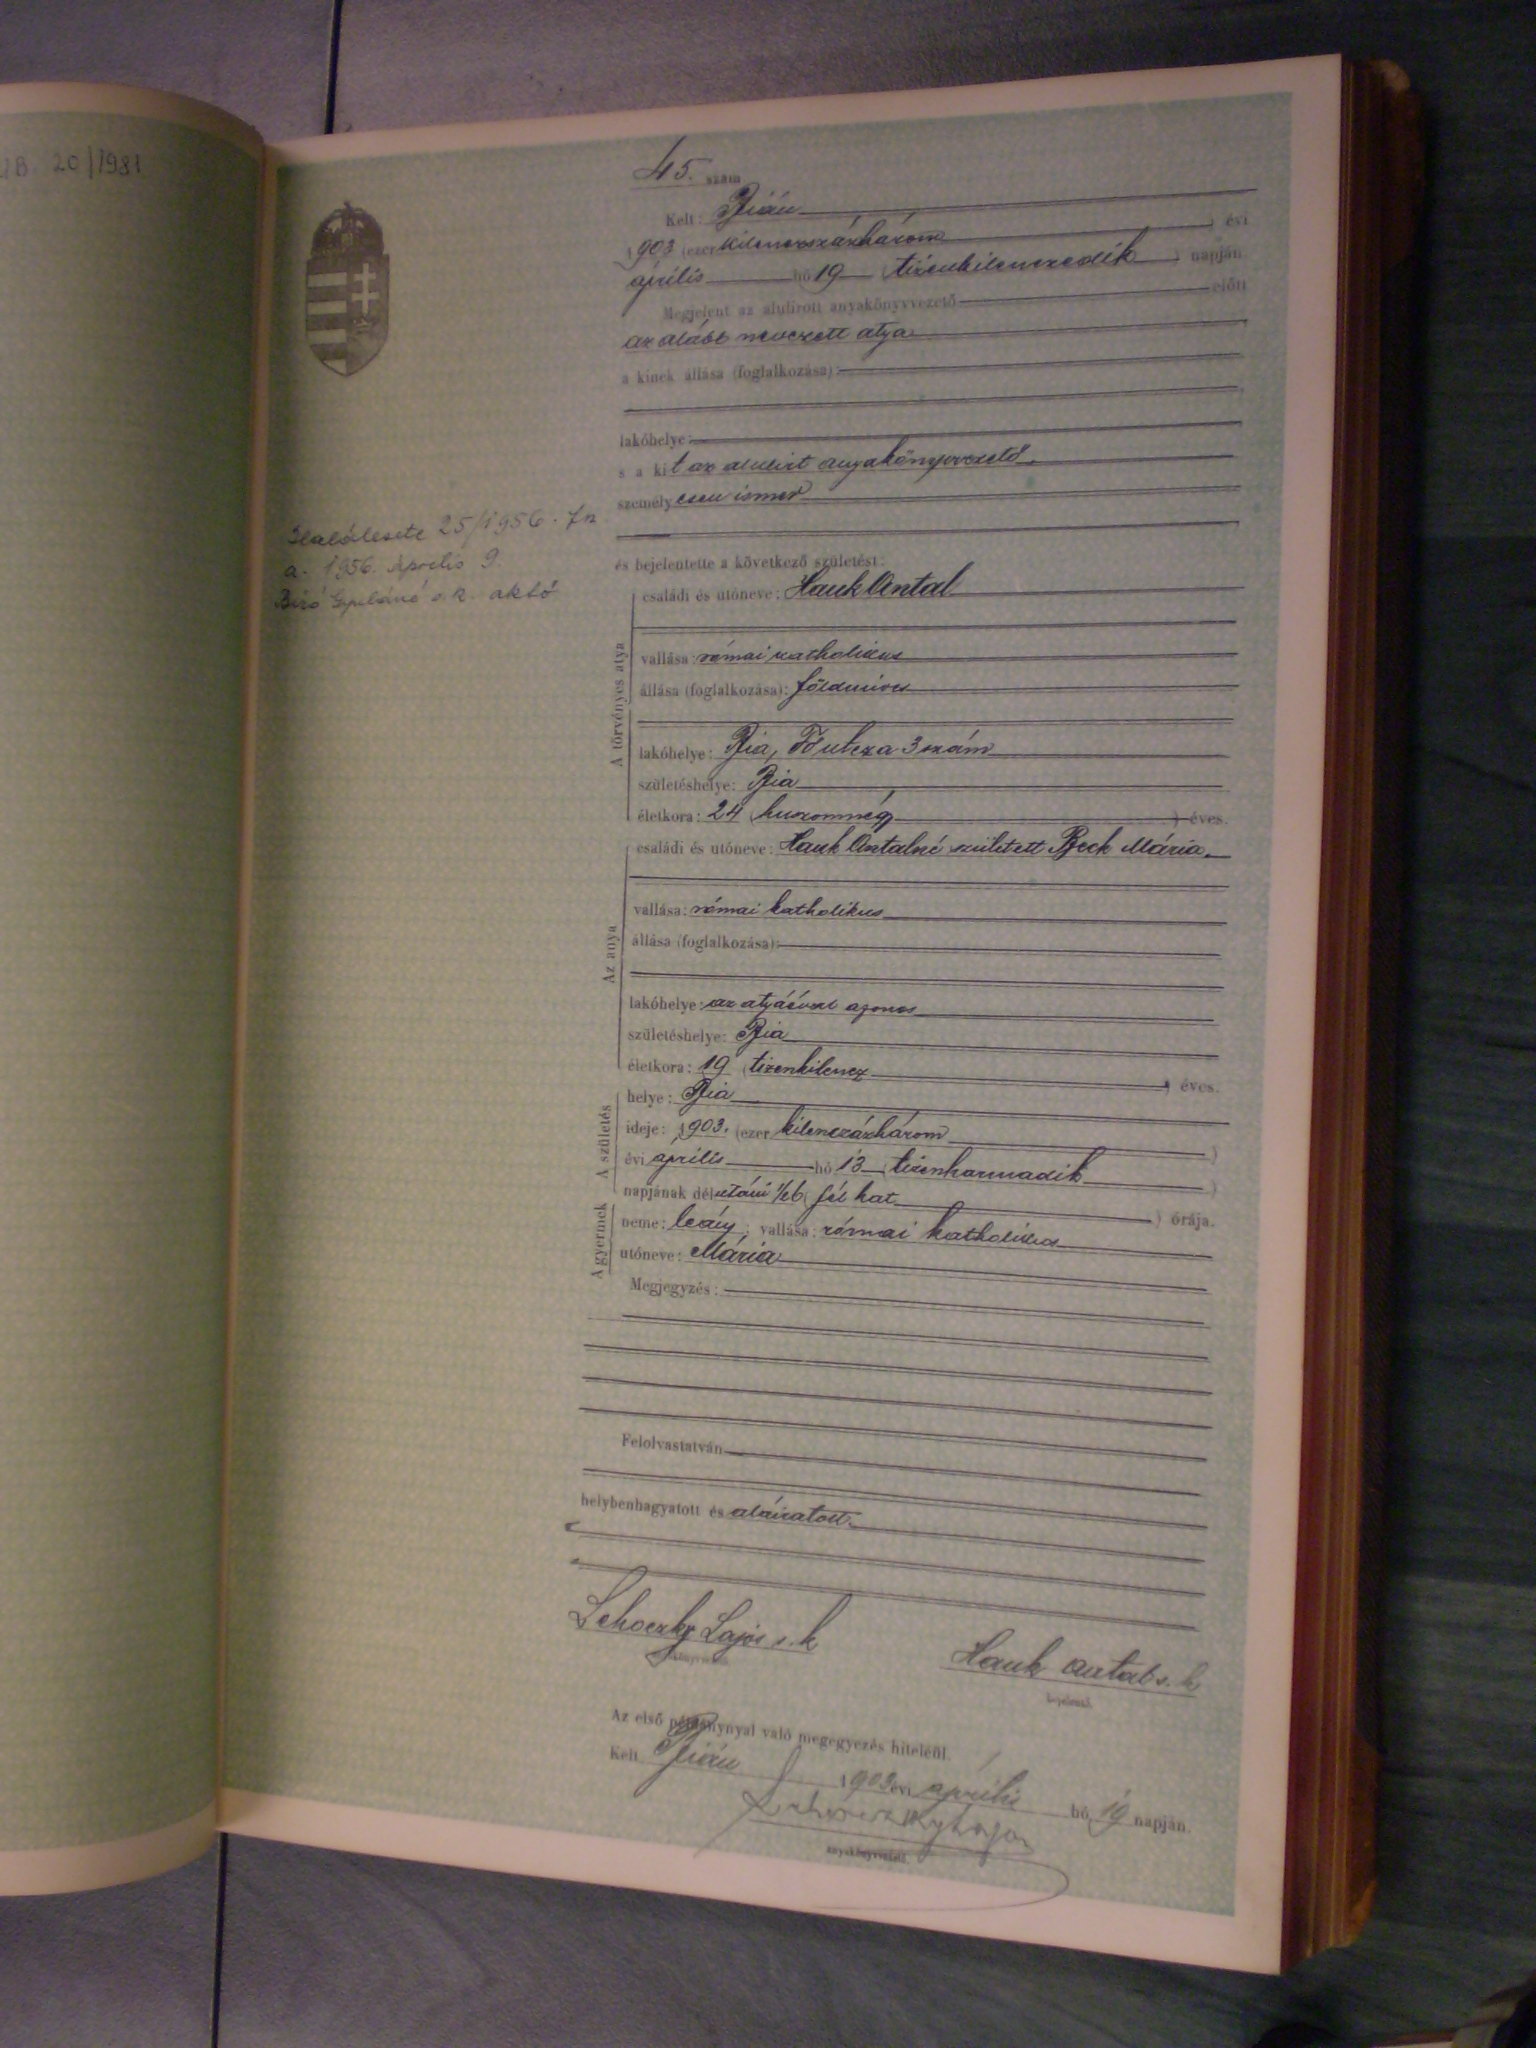 20/1981
45. szám
Kelt: Bián
1903 (ezer kilenczszázhárom) évi
április hó 19 (tizenkilenczedik) napján
Megjelent az alulirott anyakönyvvezető előtt
az alább nevezett atya
a kinek állása (foglalkozása):
lakóhelye:
s a kit az alulirt anyakönyvvezető
személyesen ismer
és bejelentette a következő születést:
Halálesete 25/1956. fn
a. 1956. április 9.
Biró s.k. aktő
A törvényes atya
családi és utóneve: Hauk Antal
vallása: római katholikus
állása (foglalkozása): földmives
lakóhelye: Bia, Fő utcza 3 szám
születéshelye: Bia
életkora: 24 (huszonnégy) éves.
Az anya
családi és utóneve: Hauk Antalné született Beck Mária
vallása: római katholikus
állása (foglalkozása):
lakóhelye: az atyáéval azonos
születéshelye: Bia
életkora: 19 (tizenkilencz) éves.
A születés
helye: Bia
ideje: 1903. (ezer kilenczázhárom)
évi április hó 13 (tizenharmadik)
napjának délutáni 1/2 6 (fél hat) órája.
A gyermek
neme: leány; vallása: római katholikus
utóneve: Mária
Megjegyzés:
Felolvastatván
helybenhagyatott és aláiratott.
Lehoczky Lajos s. k
anyakönyvvezető
Hauk Antal s. k
bejelentő
Az első példánynyal való megegyezés hiteléül.
Kelt Bián 1903 évi április hó 19 napján.
Lehoczky Lajos
anyakönyvvezető